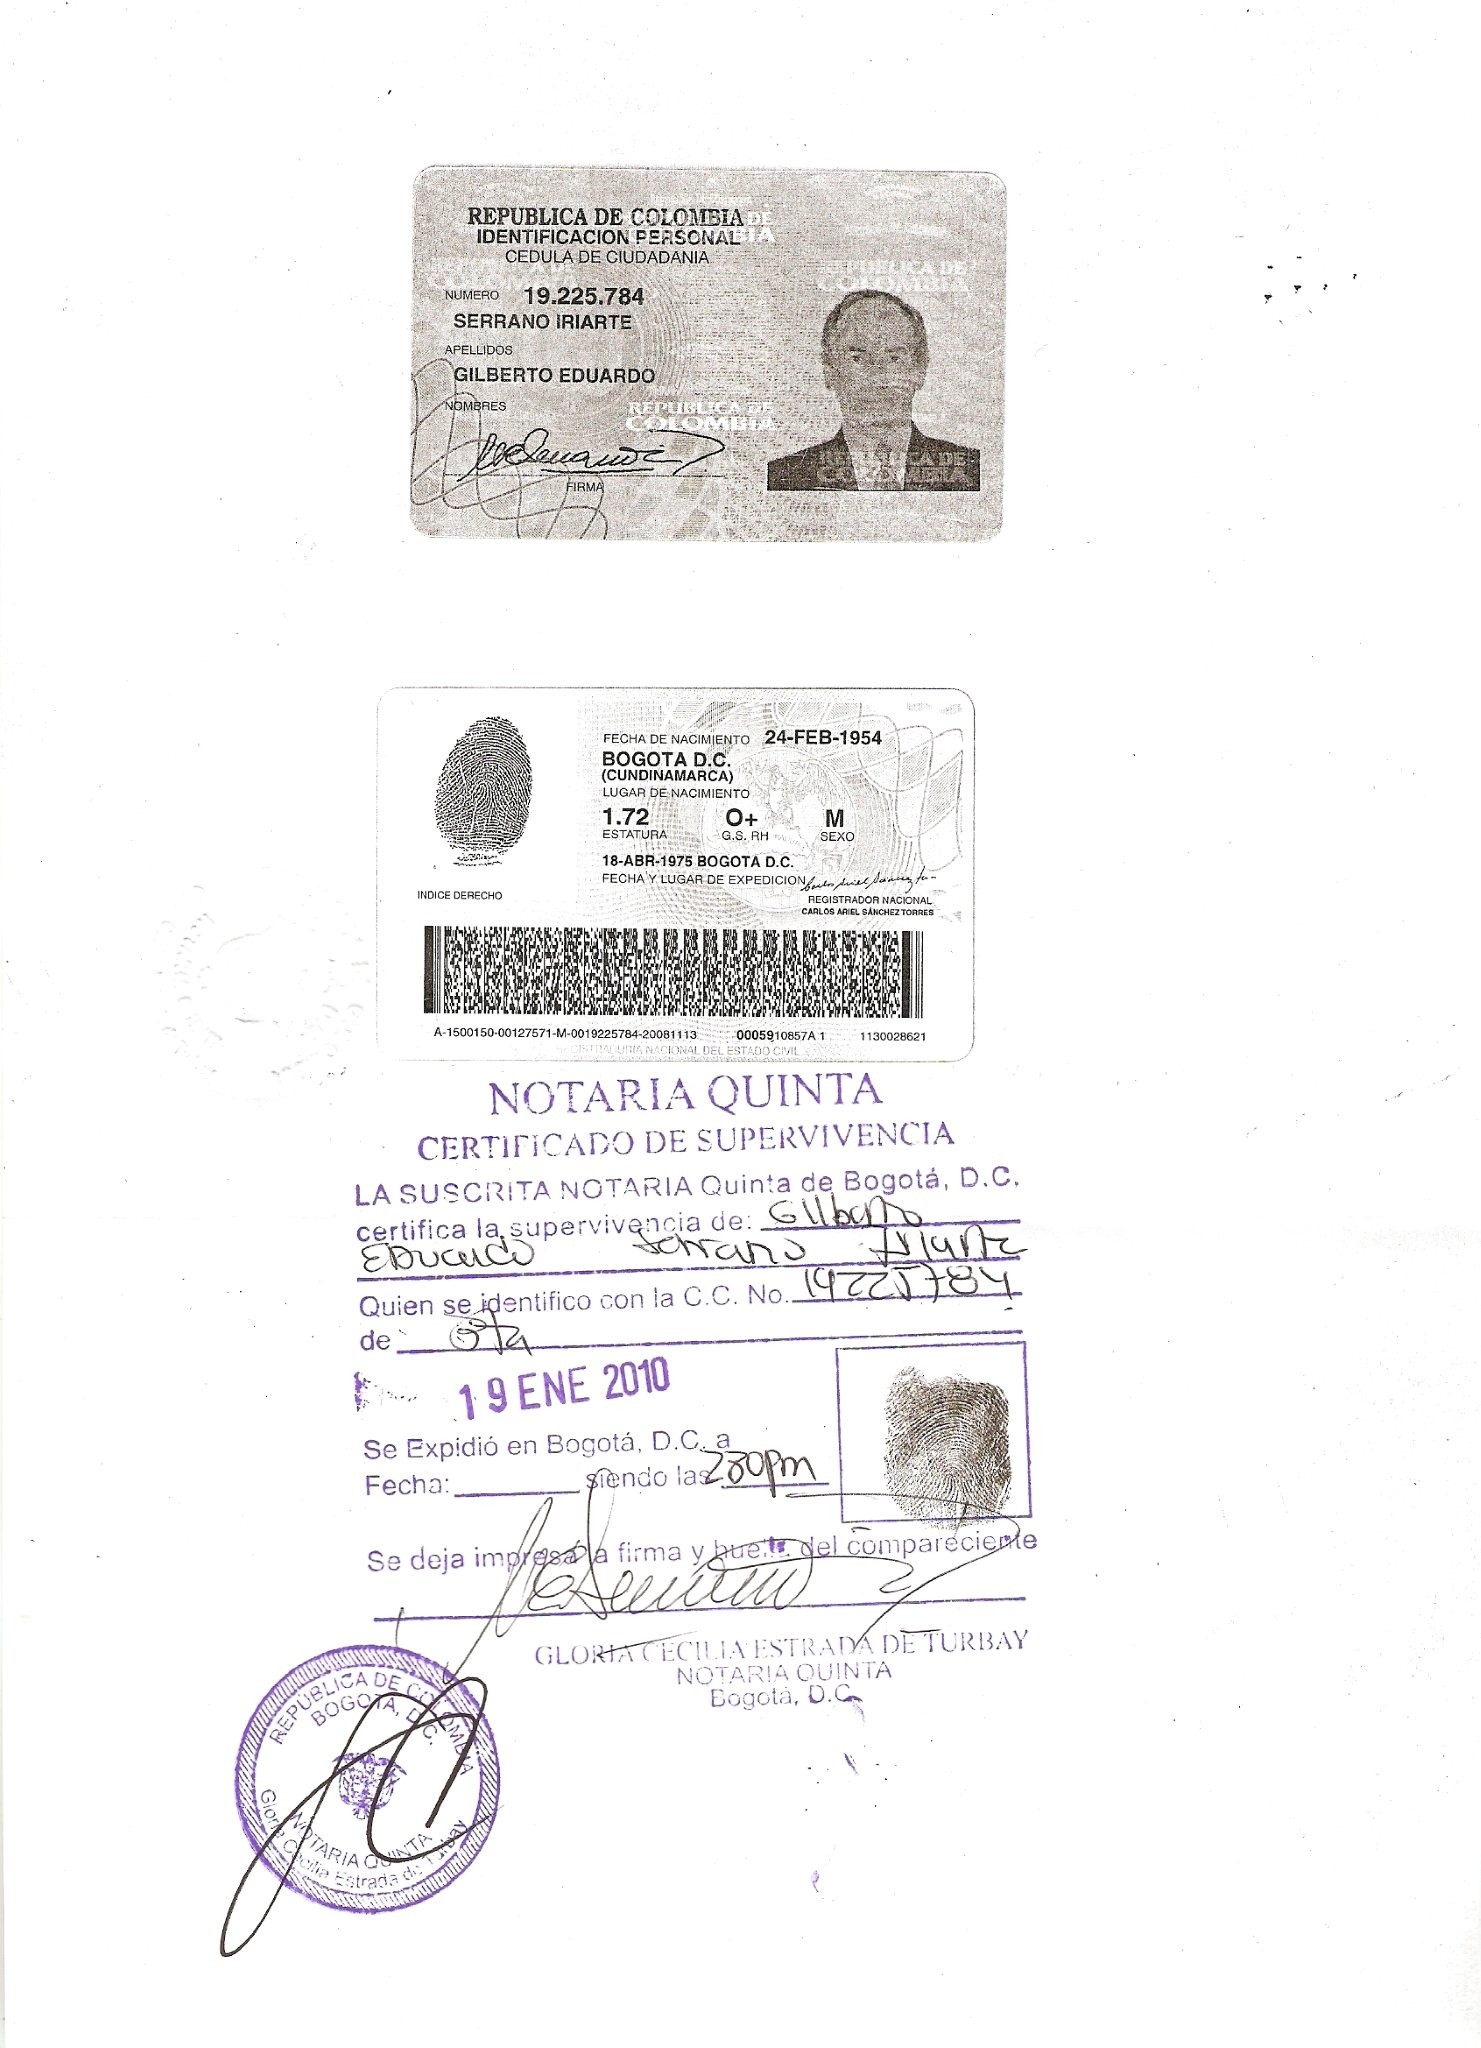 REPUBLICA DE COLOMBIA
IDENTIFICACION PERSONAL
CEDULA DE CIUDADANIA
NUMERO 19.225.784
SERRANO IRIARTE
APELLIDOS
GILBERTO EDUARDO
NOMBRES
FIRMA
REPUBLICA DE
COLOMBIA
REPUBLICA DE
COLOMBIA
FECHA DE NACIMIENTO 24-FEB-1954
BOGOTA D.C.
(CUNDINAMARCA)
LUGAR DE NACIMIENTO
1.72 O+ M
ESTATURA G.S. RH SEXO
18-ABR-1975 BOGOTA D.C.
FECHA Y LUGAR DE EXPEDICION
INDICE DERECHO
REGISTRADOR NACIONAL
CARLOS ARIEL SÁNCHEZ TORRES
A-1500150-00127571-M-0019225784-20081113 0005910857A 1 1130028621
REGISTRADURIA NACIONAL DEL ESTADO CIVIL
NOTARIA QUINTA
CERTIFICADO DE SUPERVIVENCIA
LA SUSCRITA NOTARIA Quinta de Bogotá, D.C.
certifica la supervivencia de: Gilberto
Eduardo Serrano Iriarte
Quien se identifico con la C.C. No. 19225784
de Bta
19 ENE 2010
Se Expidió en Bogotá, D.C. a
Fecha: siendo las 230pm
Se deja impresa la firma y huella del compareciente
GLORIA CECILIA ESTRADA DE TURBAY
NOTARIA QUINTA
Bogotá, D.C.
REPÚBLICA DE COLOMBIA
BOGOTA, D.C.
NOTARIA QUINTA
Gloria Cecilia Estrada de Turbay